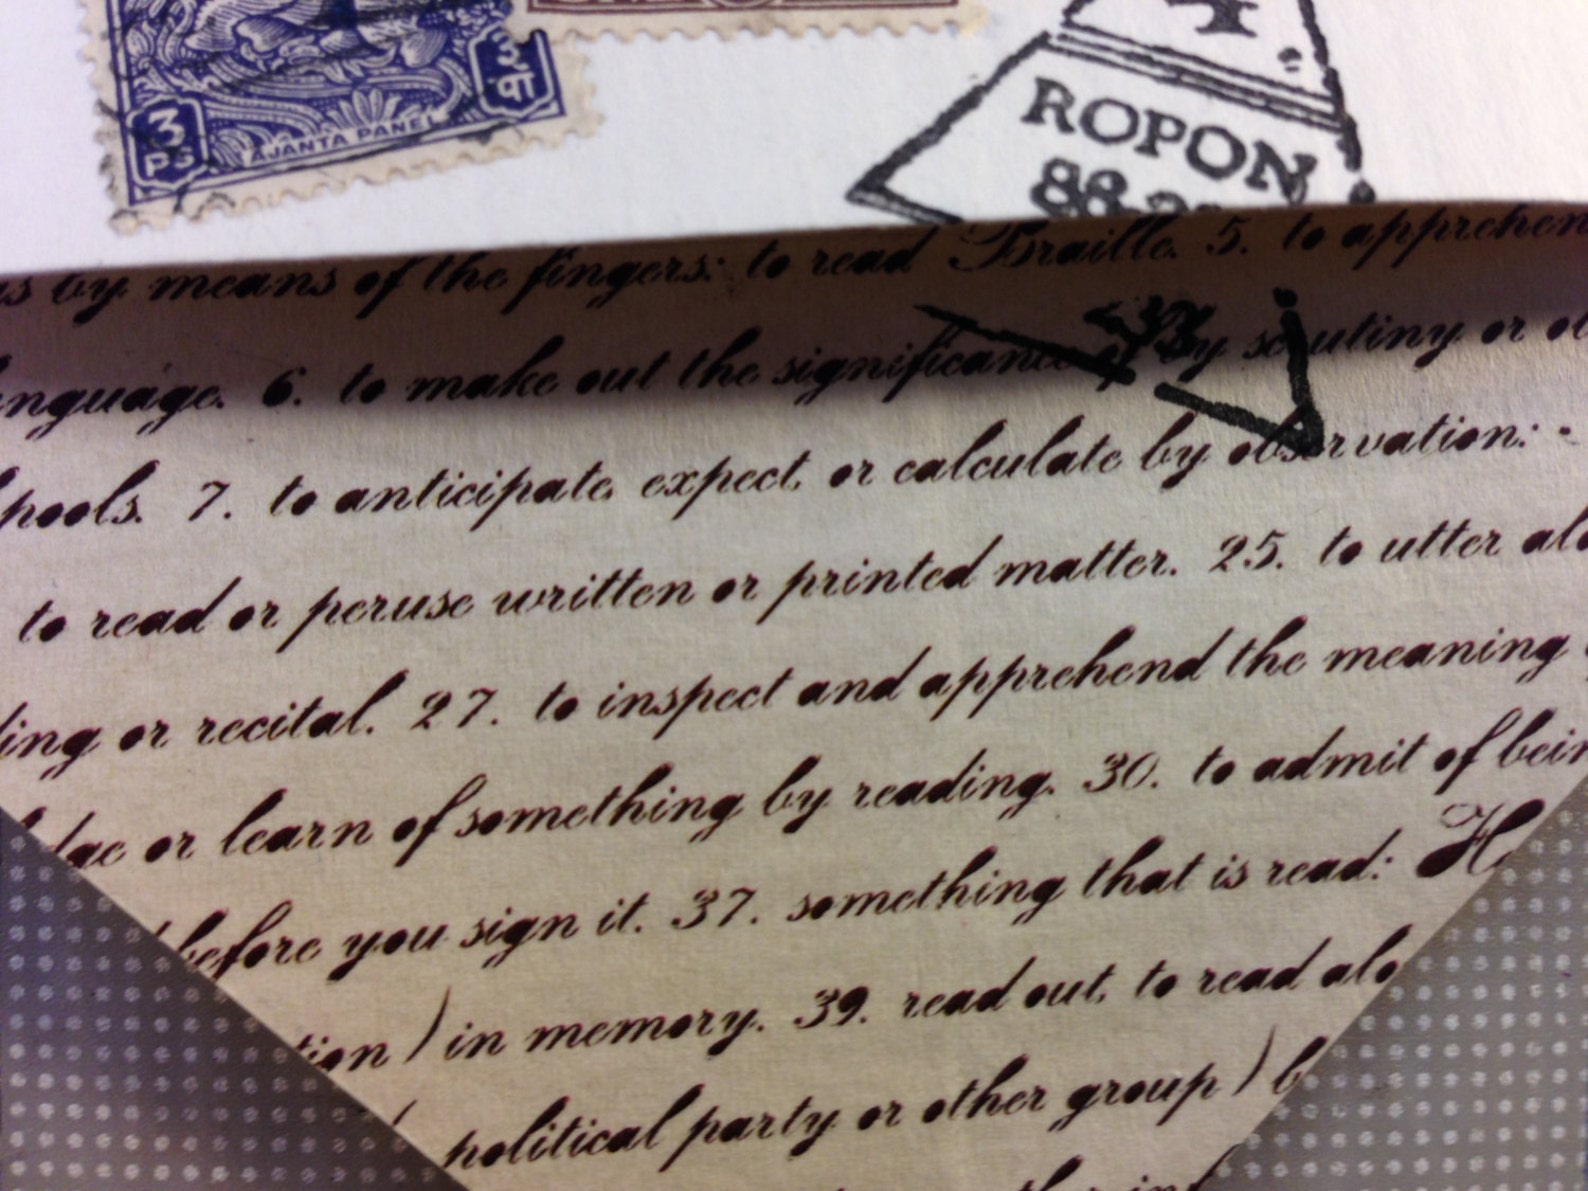 3
PS
AJANTA PANEL
3
पा
ROPON
88
by means of the fingers: to read Braille. 5. to
6. to make out the significance of by scrutiny or
pools. 7. to anticipate, expect, or calculate by observation:
to read or peruse written or printed matter. 25. to utter
ing or recital. 27. to inspect and apprehend the meaning
or learn of something by reading. 30. to admit of
before you sign it. 37. something that is read:
tion) in memory. 39. read out, to read
political party or other group)